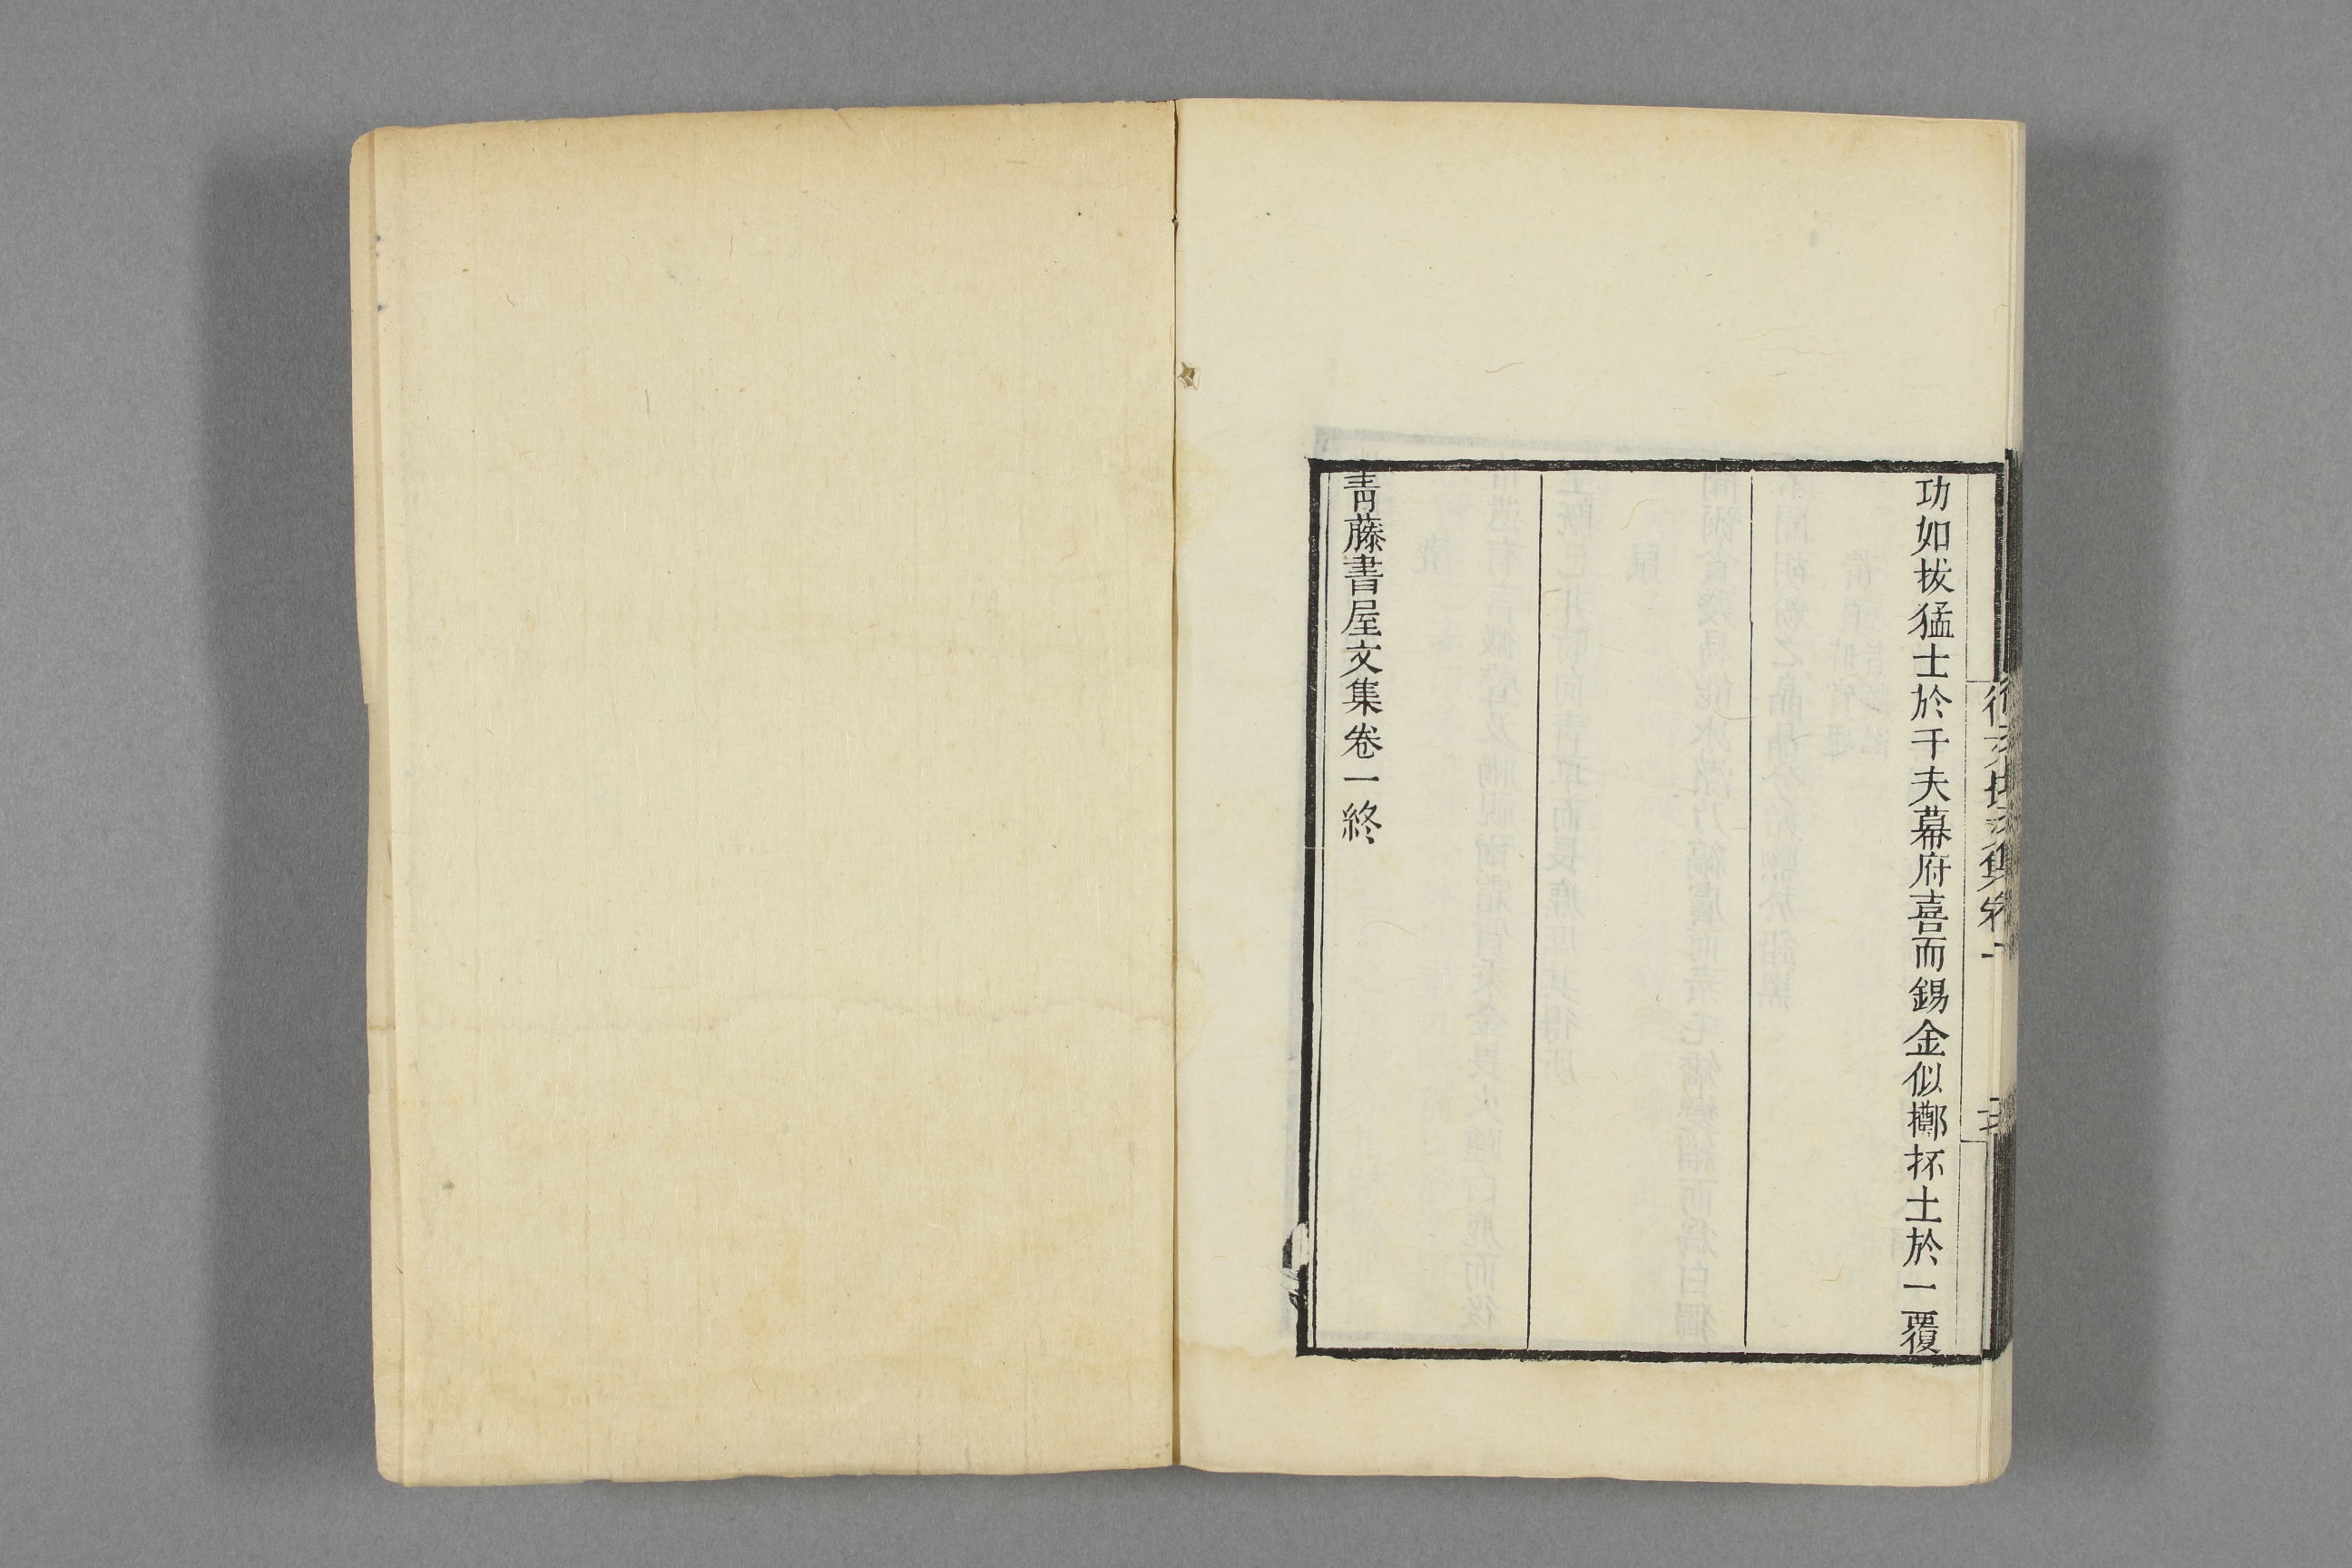 功如拔猛士於千夫幕府喜而錫金似擲抔土於一覆
青藤書屋文集卷一終